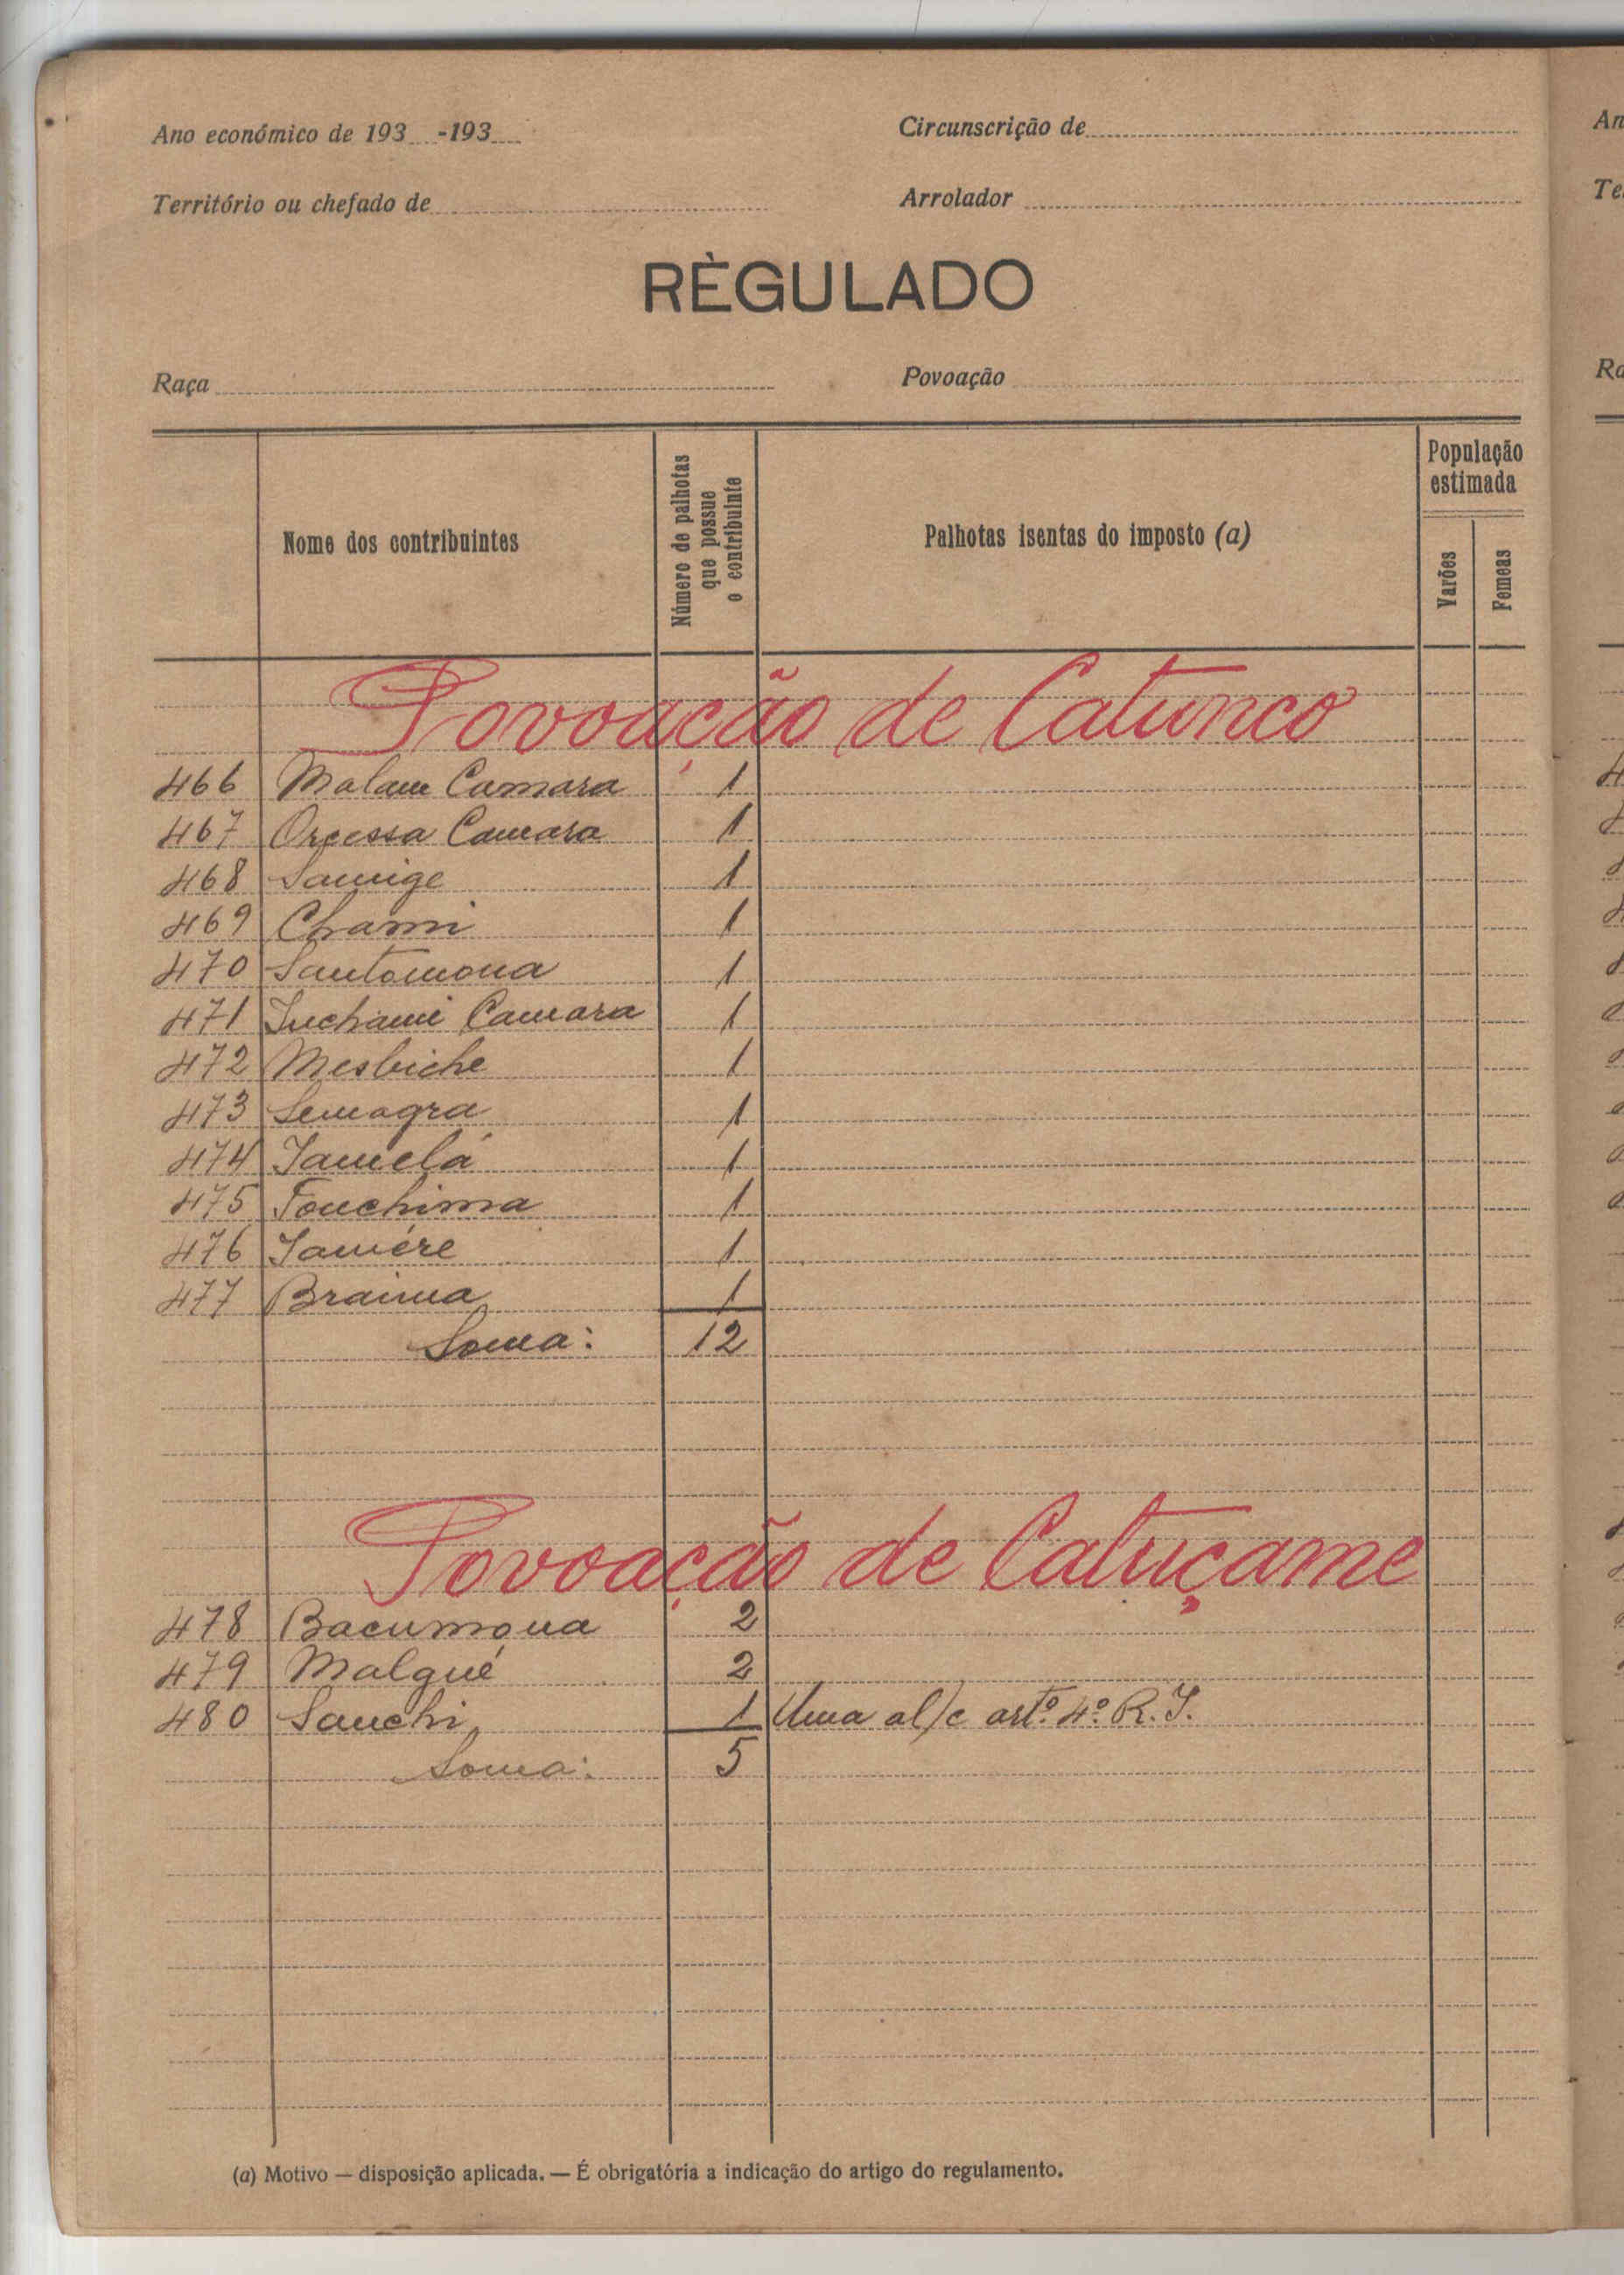 Ano económico de 193 -193
Circunscrição de
Território ou chefado de
Arrolador
RÈGULADO
Raça
Povoação
Nome dos contribuintes
Número de palhotas que possue o contribuinte
Palhotas isentas do imposto (a)
População estimada
Varões
Femeas
Povoação de Catunco
466 Malam Camara 1
467 Orcessa Camara 1
468 Samige 1
469 Chami 1
470 Santomona 1
471 Inchami Camara 1
472 Mesbiche 1
473 Semagra 1
474 Jamelá 1
475 Fonchima 1
476 Jamére 1
477 Braima 1
Soma: 12
Povoação de Catuçame
478 Bacumona 2
479 Malgué 2
480 Sanchi 1 Uma al/c artº. 4º. R. I.
Soma: 5
(a) Motivo — disposição aplicada. — É obrigatória a indicação do artigo do regulamento.